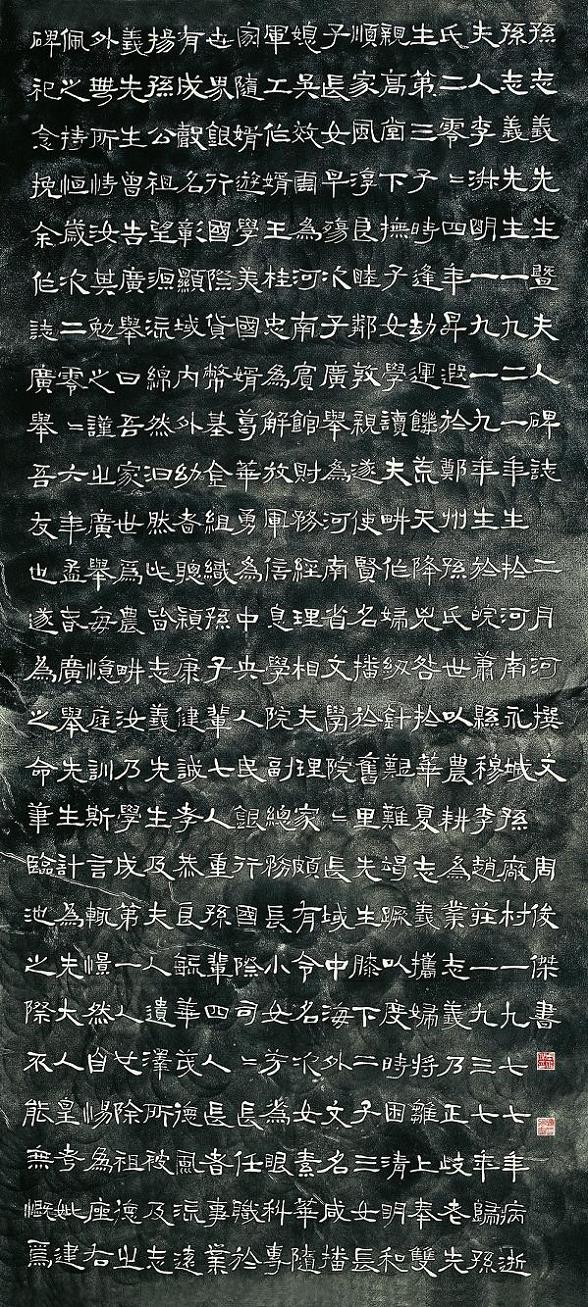 孫志義先生暨夫人碑誌 二月河撰文 周俊傑書
孫志義先生一九二一年生於河南永城孫廠村一九七七年病逝
夫人李淋明一九一九年生於皖蕭縣穆李趙莊一九三七年歸孫
氏二零〻四年昇遐於鄭州孫氏世以農耕為業志義乃正歧老先
生第三子時逢劫運饑荒天降兇咎於華夏志義攜婦將雛上奉雙
親高堂下撫子女學讀夫畊作婦紉針艱難竭蹶以度時困清明和
順家風淳良睦鄰敦親遂使賢名播於舊里先生膝下二子三女長
子長女早殤次子廣舉為河南省文學院〻長域中海外文名咸播
媳吳效爾為河南賓館財務經理相夫理家頗有令名次女素華隨
軍工作婿王桂忠為解放軍信息學院副總務長小女芳為眼科專
家隨婿遊學美國婿萼華勇為中央人民銀行國際司〻長任職於
世界銀行國際貨幣基金組織孫子輩七人重孫輩四人長者事業
有成歡名彰顯域內外幼者聰穎康健誠孝恭良毓華茂德風流遠
揚孫公祖望源流綿然汩然此皆志義先生及夫人遺澤所被及志
義先生曾告廣舉曰吾家世為農畊汝乃學成第一人廿除祖德㞢
外無所恃汝其勉之謹㞢廣舉每憶庭訓斯言輒憬然自惕為座右
佩之持恒歲次二零〻六年孟言廣舉先生計為先大人皇考妣建
碑祀念挽余作誌廣舉吾友也遂為之命筆臨池之際不能無慨焉